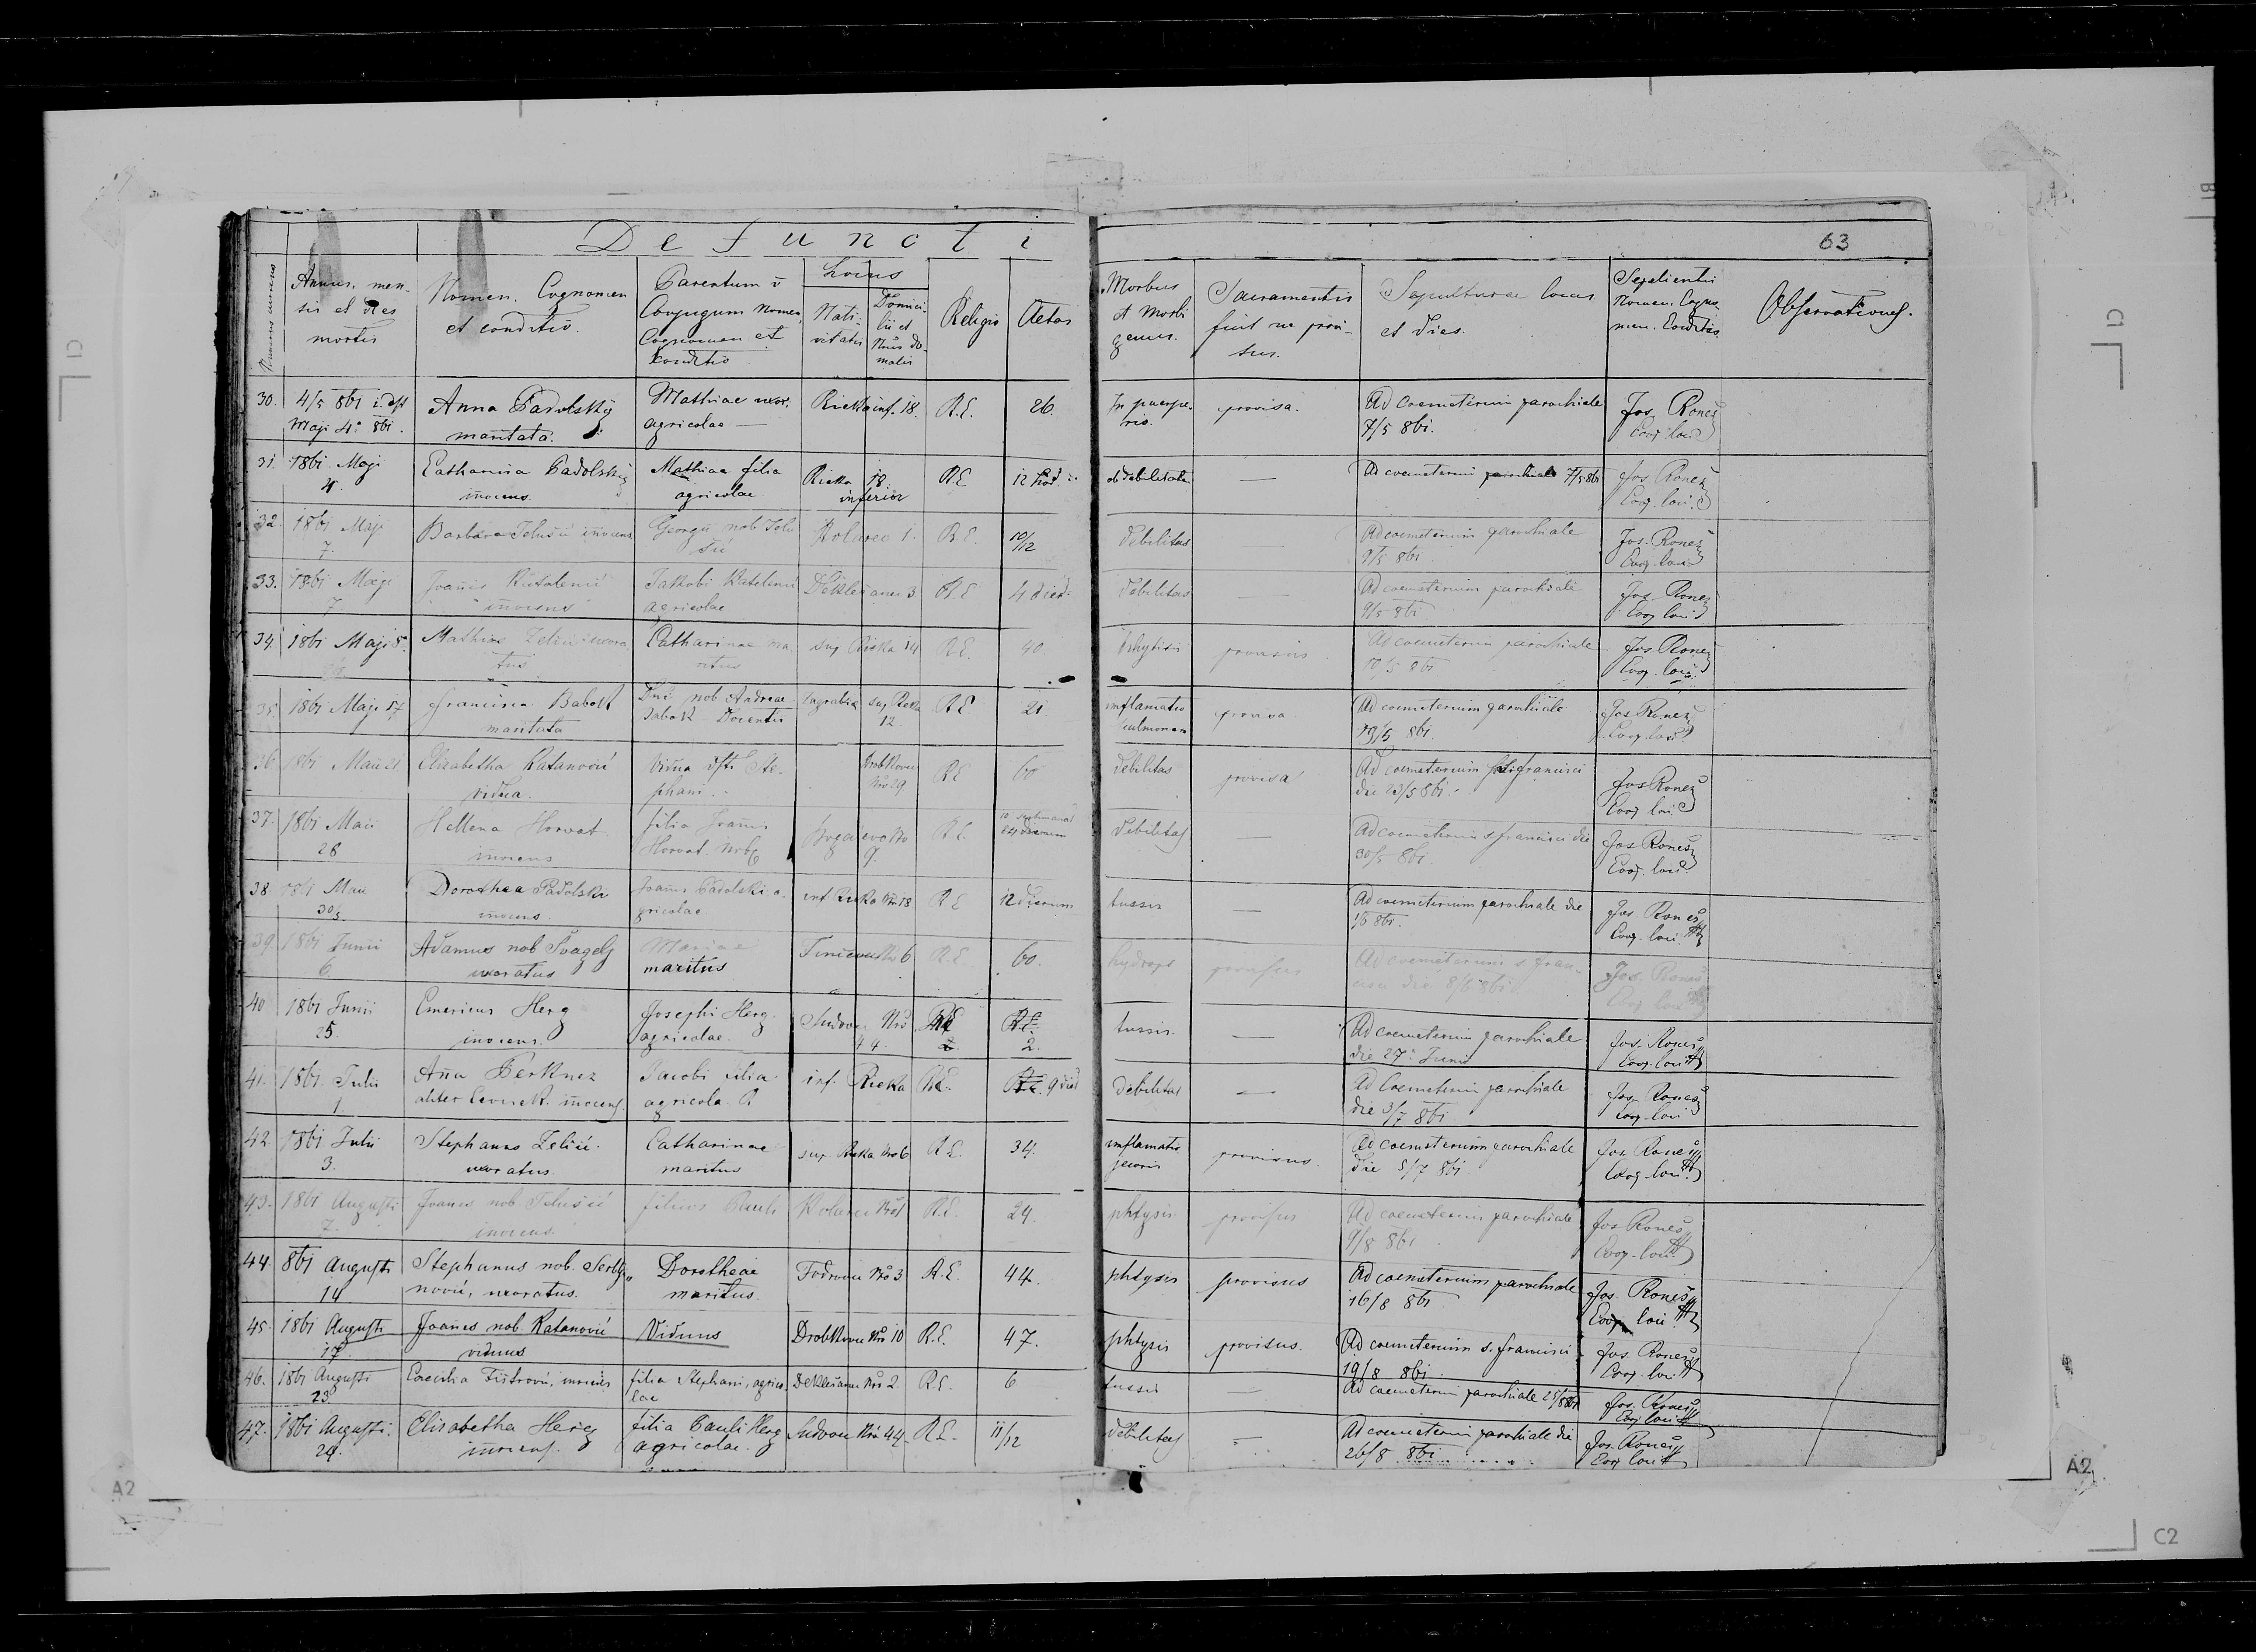 Defuncti
63
Numerus currens
Annus, mensis et dies mortis
Nomen, Cognomen et conditio.
Parentum v Conjugum Nomen, Cognomen et Conditio
Locus
Nativitatis
Domicilii et Nrus domalis
Religio
Aetas
Morbus et Morbi genus.
Sacramentis fuit ne provisus.
Sepulturae locus et dies.
Sepelientis Nomen, Cogno men. Conditio.
Observationes.
30. 4/5 861 i. est Anna Padolsky Mathiae uxor, Rieka inf. 18. R.C. 26. In puerpe- provisa. Ad Coemeterium parochiale Jos. Rones
Maji 4. 861. maritata. agricolae — rio. 7/5 861. Coop. loci
31. 1861 Maji Catharina Padolsky Mathiae filia Rieka 18. R.C 12 hod. ob debilitatem — Ad coemeterium parochiale 7/5 861 Jos. Rones
4. innocens agricolae inferior Coop. loci
32. 1861 Maji Barbara innocens Georgii nob. Kolarec 1. R.C. 10/12 debilitas — Ad coemeterium parochiale Jos. Rones
7. 9/5 861 Coop. loci
33. 1861 Maji Joannes Jakobi 3 R.C 4 dier. debilitas — Ad coemeterium parochiale Jos. Rones
7 innocens agricolae 9/5 861 Coop. loci
34. 1861 Maji 8. Mathias uxora Catharinae ma- sup. Rieka 14 R.C. 40 phtysis provisus Ad coemeterium parochiale Jos Rones
tus ritus 10/5 861 Coop. loci
35. 1861 Maji 17 Francisca Babost Dni nob Andreae Zagrabia sup Rieka R.C 21 inflamatio provisa Ad coemeterium parochiale Jos Rones
maritata Docentis 12 pulmonum 19/5 861. Coop. loci
36. 1861 Maii 21 Elisabetha Ratanović Vidua dfti Ste- Drobkovec R.C 60 debilitas provisa Ad coemeterium s. francisci Jos Rones
vidua. phani. Nro 29 die 23/5 861. Coop. loci
37. 1861 Maii Hellena Horvat filia Joannis Nro R.C. dierum debilitas — Ad coemeterium s francisci die Jos Rones
28 innocens Horvat nob 9. 30/5 861. Coop. loci
38 1861 Maii Dorothea Padolski Joannis Padolski a- inf Rieka Nro 18 R.C 12 dierum tussis — Ad coemeterium parochiale die Jos Rones
30/5 innocens. gricolae 1/6 861. Coop. loci
39. 1861 Junii Adamus nob Švagelj Mariae Nro 6 R.C. 60. hydrops provisus Ad coemeterium s. fran- Jos. Rones
6. uxoratus maritus cisci die 8/6 861 Coop. loci
40 1861 Junii Emericus Herg Josephi Herg. Sudovec Nro R.C. 2. tussis. — Ad coemeterium parochiale Jos. Rones
25. innocens. agricolae. 44. die 27a Junii Coop. loci
41. 1861. Julii Anna Berknez Jacobi filia inf. Rieka R.C. 9 dier debilitas — Ad Coemeterium parochiale Jos. Rones
1. aliter innocens. agricola die 3/7 861 Coop. loci
42. 1861. Julii Stephanus Zelić. Catharinae sup. Rieka Nro 6 R.C. 34. inflamatio provisus. Ad coemeterium parochiale Jos. Rones
3. uxoratus. maritus jecoris die 5/7 861 Coop. loci
43. 1861 Augusti Joannes nob filius Pauli Kolarec Nro 1 R.C. 24. phtysis provisus Ad coemeterium parochiale Jos Rones
7. innocens. 9/8 861 Coop. loci
44. 861 Augusti Stephanus nob. Dorotheae Nro 3 R.C. 44. phtysis provisus Ad coemeterium parochiale Jos. Rones
14 uxoratus. maritus. 16/8 861 Coop. loci
45. 1861 Augusti Joannes nob. Ratanović Viduus Drobkovec Nro 10 R.C. 47. phtysis provisus. Ad coemeterium s. francisci Jos. Rones
17. viduus 19/8 861. Coop. loci
46. 1861 Augusti innocens filia Stephani, agrico Nro 2. R.C. 6 tussis — Ad coemeterium parochiale 25/8 861 Jos. Rones
23. lae Coop. loci
47. 1861 Augusti. Elisabetha Herg filia Pauli Herg Sudovec Nro 44. R.C. 11/12 debilitas — Ad coemeterium parochiale die Jos. Rones
24. innocens. agricolae. 26/8 861 Coop. loci
C1
C1
B1
A2
A2
C2